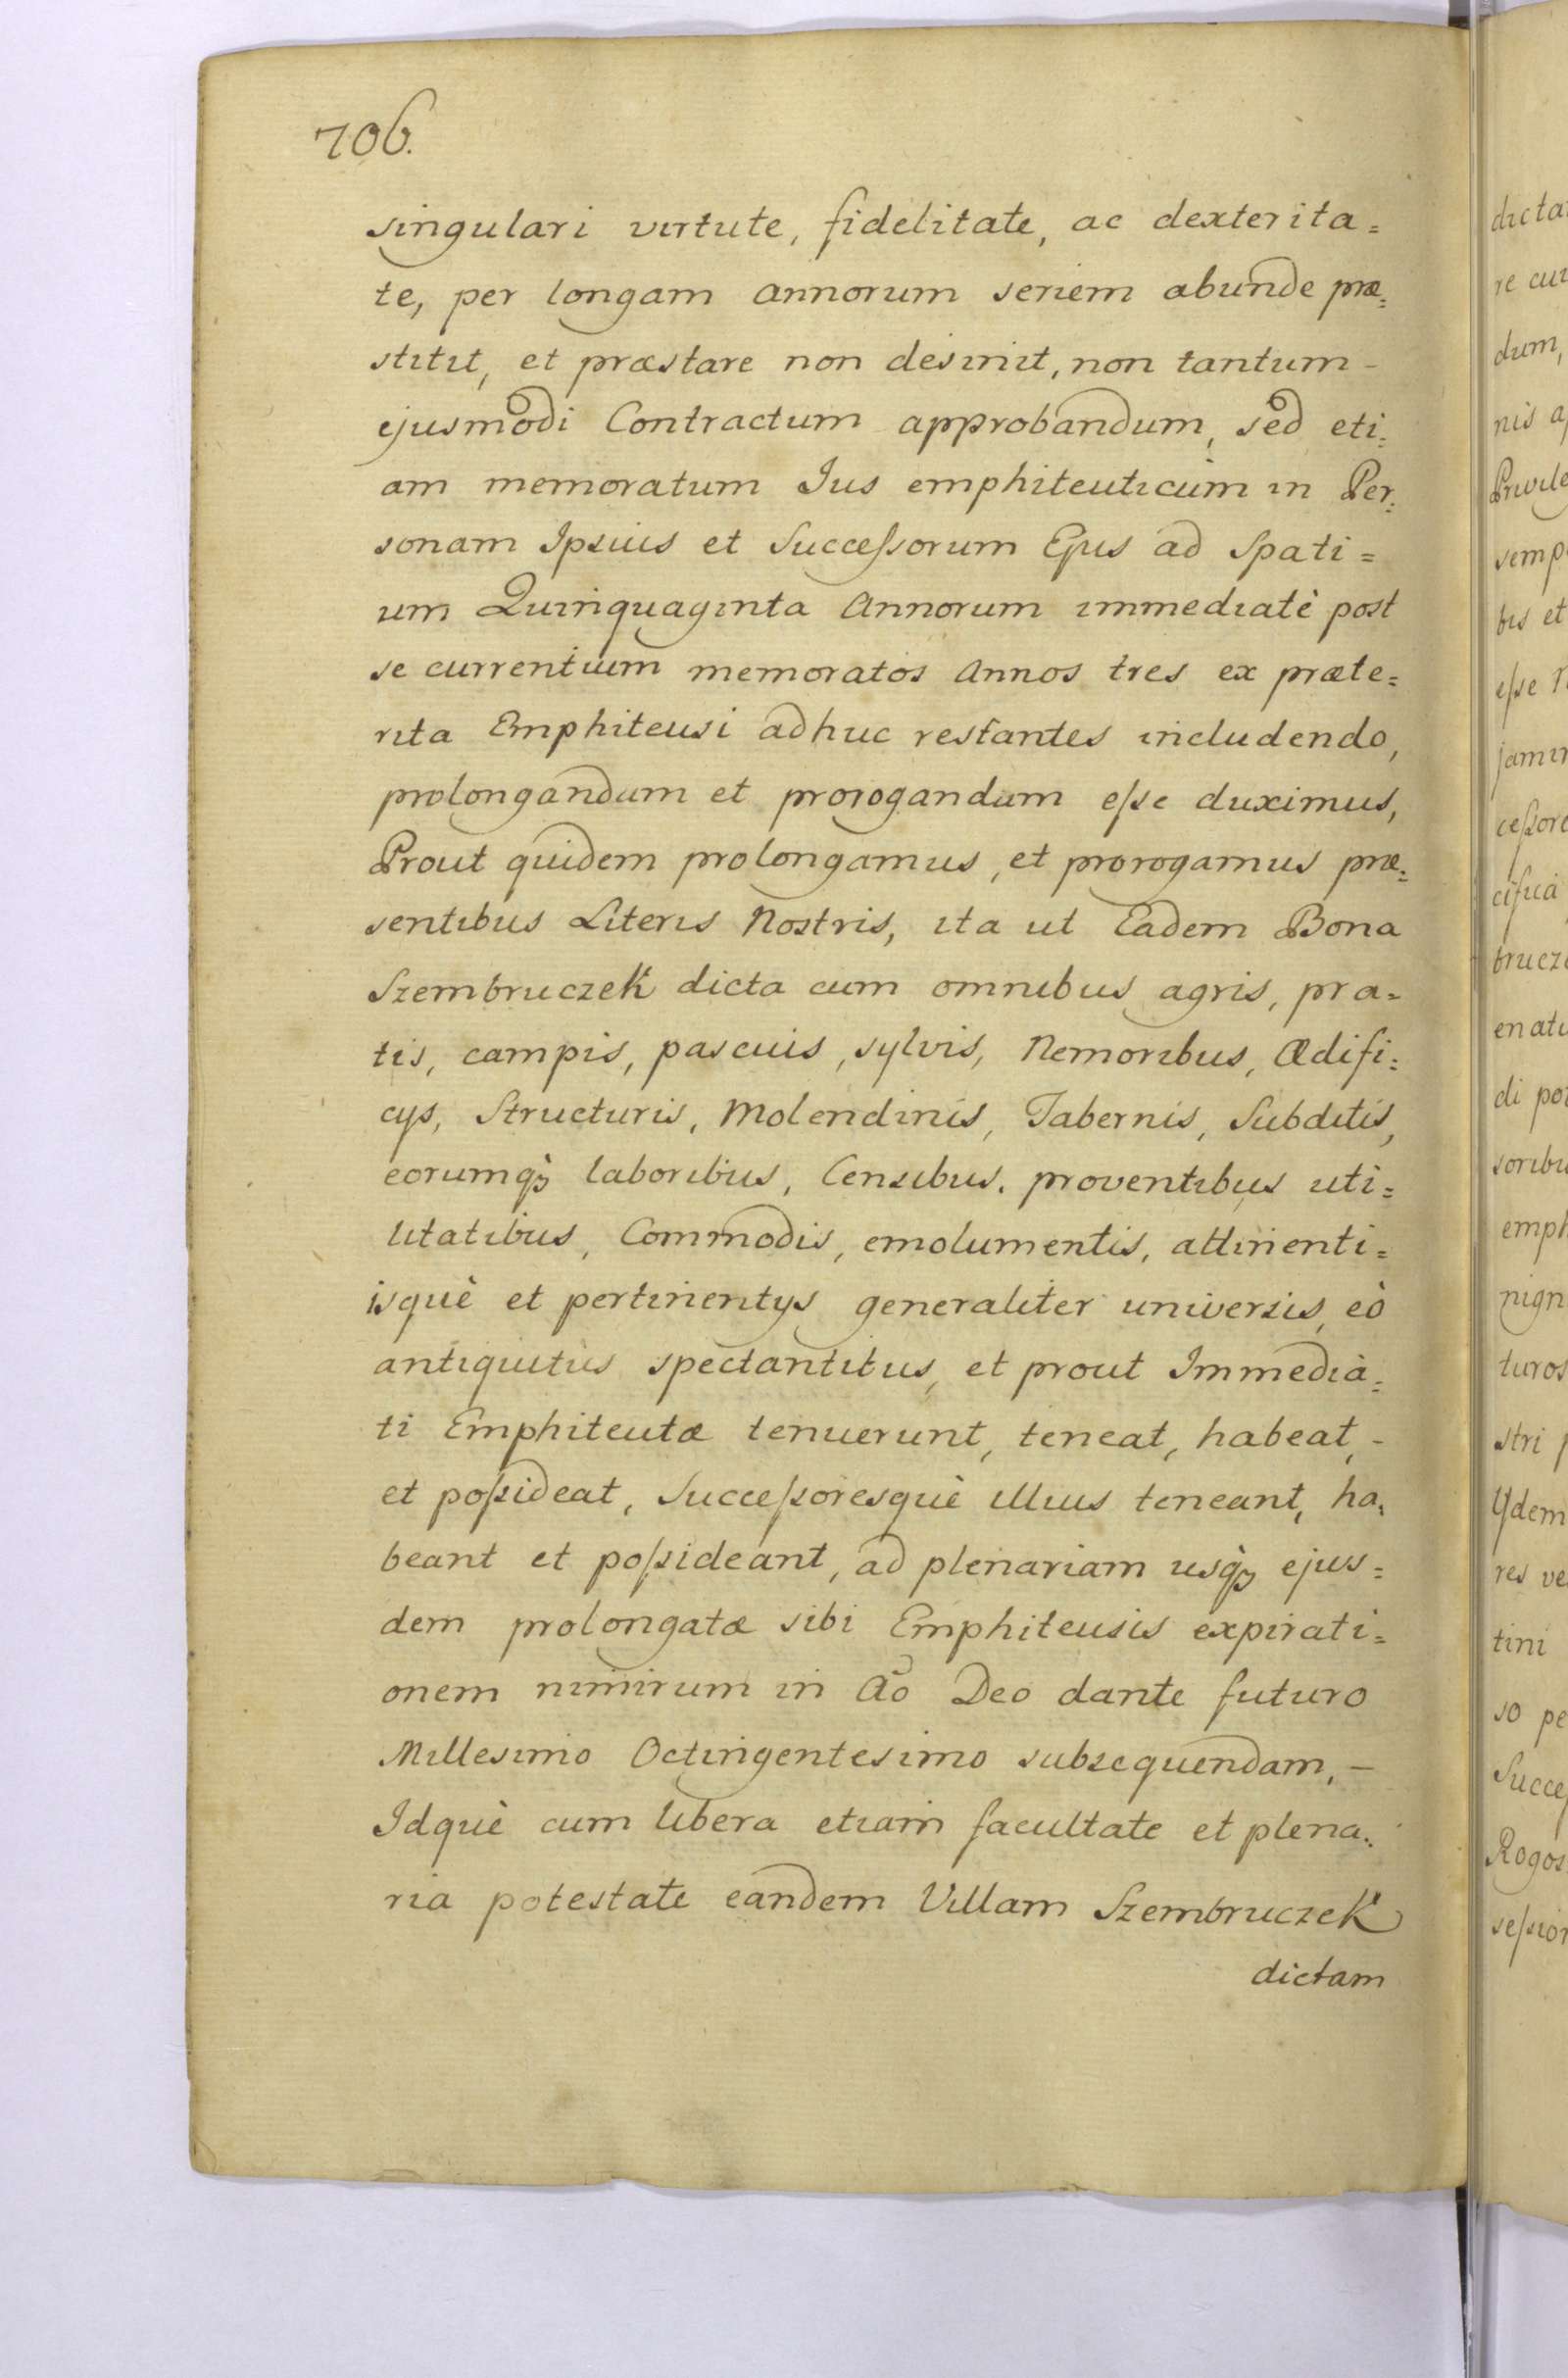 706.
singulari virtute, fidelitate, ac dexterita=
te, per longam annorum seriem abunde præ=
stitit, et præstare non desinit, non tantum -
ejusmodi Contractum approbandum, sed eti=
am memoratum Jus emphiteuticum in Per=
sonam Ipsius et Successorum Ejus ad Spati=
um Quinquaginta Annorum immediatè post
se currentium memoratos Annos tres ex præte=
rita Emphiteusi adhuc restantes includendo,
prolongandum et prorogandum esse duximus,
Prout quidem prolongamus, et prorogamus præ=
sentibus Literis Nostris, ita ut Eadem Bona
Szembruczek dicta cum omnibus agris, pra=
tis, campis, pascuis, sylvis, Nemoribus, Ædifi=
cys, Structuris, Molendinis, Tabernis, Subditis,
eorumq̀ꝫ laboribus, Censibus. proventibus uti=
litatibus, Commodis, emolumentis, attinenti=
isquè et pertinentys generaliter universis, eò
antiquitùs spectantibus, et prout Immedia=
ti Emphiteutæ tenuerunt, teneat, habeat, -
et possideat, Successoresquè illius teneant, ha=
beant et possideant, ad plenariam usq̀ꝫ ejus=
dem prolongatæ sibi Emphiteusis expirati=
onem nimirum in Aõ Deo dante futuro
Millesimo Octingentesimo subsequendam, -
Idquè cum libera etiam facultate et plena=
ria potestate eandem Villam Szembruczek
dictam
dicta
re cui
dum,
nis a
Privile
semp
bis et
esse
jam
cessor
cisua
brucz
enat
di po
soribu
emph
nign
turos
stri
Ydem
res ve
tini
so pe
Succes
Rogos
session